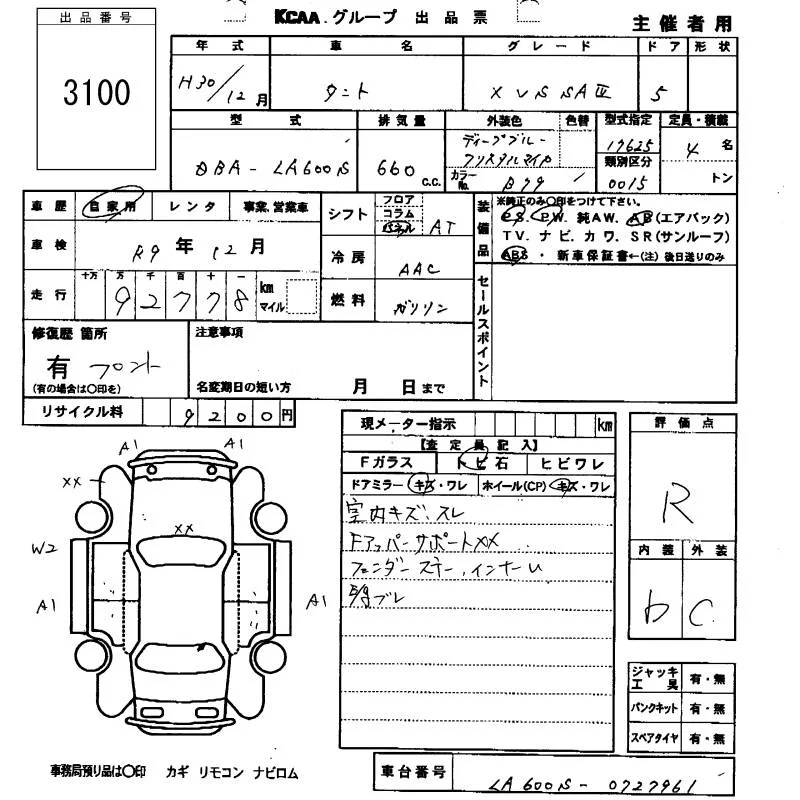 出品番号
3100
KCAA.グループ 出品票
主催者用
年式 車名 グレード ドア 形状
H30/12月 タント X VS SAⅢ 5
型式 排気量 外装色 色替 型式指定 定員・積載
DBA-LA600S 660 C.C.
ディープブルークリスタルマイカ
カラーNo. B79
17625
類別区分
0015
4名
トン
車歴 自家用 レンタ 事業.営業車
車検 R9年12月
走行 十万 万 千 百 十 一
92778 km マイル
シフト フロア コラム パネル AT
冷房 AAC
燃料 ガソリン
装備品
※純正のみ○印をつけて下さい。
PS. PW. 純AW. AB(エアバック)
TV. ナビ. カワ. SR(サンルーフ)
ABS・新車保証書←(注)後日送りのみ
セールスポイント
修復歴 箇所
有 フロント
(有の場合は○印を)
注意事項
名変期日の短い方 月 日まで
リサイクル料 9200円
現メーター指示 km
【査定員記入】
Fガラス トビ石 ヒビワレ
ドアミラー キズ・ワレ ホイール(CP) キズ・ワレ
室内キズ、スレ
FアッパーサポートXX
フェンダーステー、インナーU
ブレ
評価点
R
内装 外装
b C
A1 A1
XX
XX
W2
A1 A1
ジャッキ工具 有・無
パンクキット 有・無
スペアタイヤ 有・無
事務局預り品は○印 カギ リモコン ナビロム
車台番号 LA600S-0727961